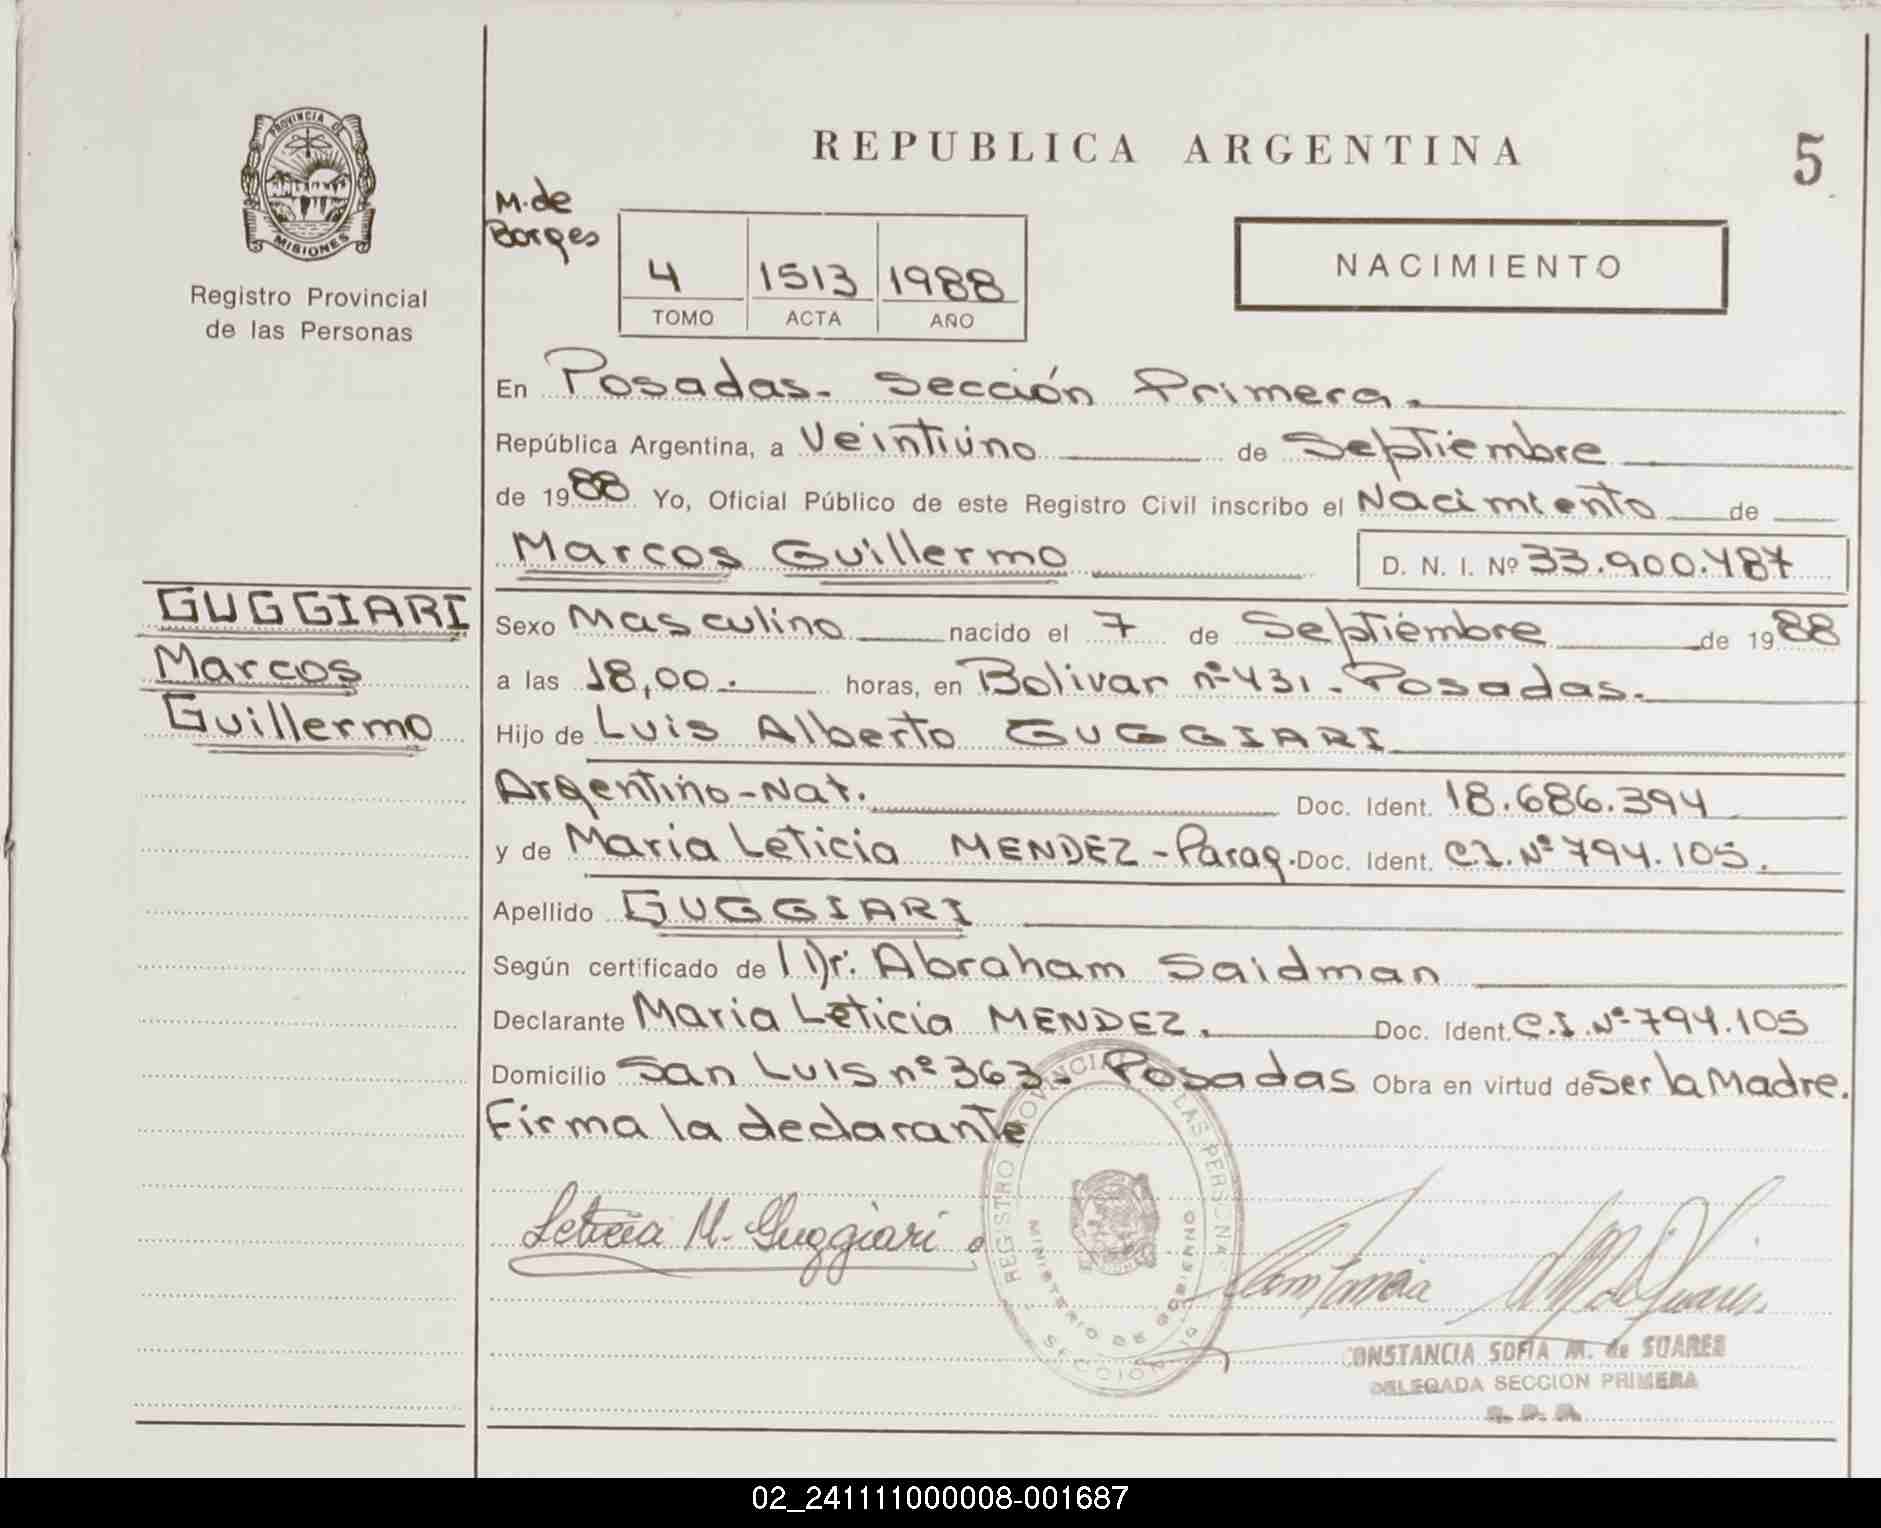 PROVINCIA DE
MISIONES
Registro Provincial
de las Personas
GUGGIARI
Marcos
Guillermo
REPUBLICA ARGENTINA
5
M. de
Borges
4 1513 1988
TOMO ACTA AÑO
NACIMIENTO
En Posadas. Sección Primera.
República Argentina, a Veintiuno de Septiembre
de 1988 Yo, Oficial Público de este Registro Civil inscribo el Nacimiento de
Marcos Guillermo D. N. I. Nº 33.900.487
Sexo Masculino nacido el 7 de Septiembre de 1988
a las 18,00. horas, en Bolivar nº 431. Posadas.
Hijo de Luis Alberto GUGGIARI
Argentino-Nat. Doc. Ident. 18.686.394
y de Maria Leticia MENDEZ-Parag. Doc. Ident. C.I. Nº 794.105.
Apellido GUGGIARI
Según certificado de Dr. Abraham Saidman
Declarante Maria Leticia MENDEZ. Doc. Ident. C.I. Nº 794.105
Domicilio San Luis nº 363. Posadas Obra en virtud de Ser la Madre.
Firma la declarante
Leticia M. Guggiari
REGISTRO PROVINCIAL DE LAS PERSONAS
MINISTERIO DE GOBIERNO
SECCION
CONSTANCIA SOFIA M. de SUARES
DELEGADA SECCION PRIMERA
02_241111000008-001687